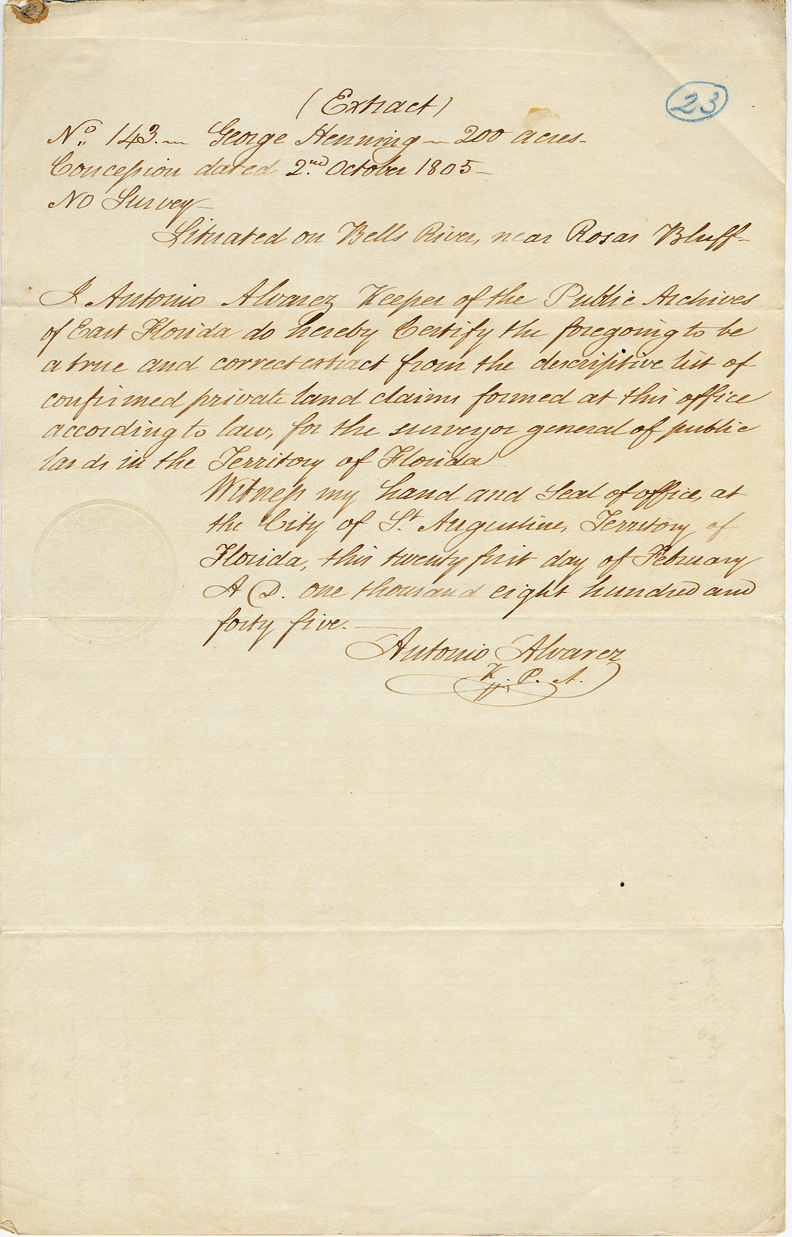 (Extract)
23
No. 143.— George Henning — 200 acres—
Concession dated 2nd October 1805—
No Survey—
Situated on Bells River, near Rosas Bluff—
I Antonio Alvarez Keeper of the Public Archives
of East Florida do hereby Certify the foregoing to be
a true and correct extract from the descriptive list of
confirmed private land claims formed at this office
according to law, for the surveyor general of public
lands in the Territory of Florida
Witness my hand and Seal of office, at
the City of St. Augustine, Territory of
Florida, this twenty first day of February
A.D. one thousand eight hundred and
forty five.—
Antonio Alvarez
K. P. A.